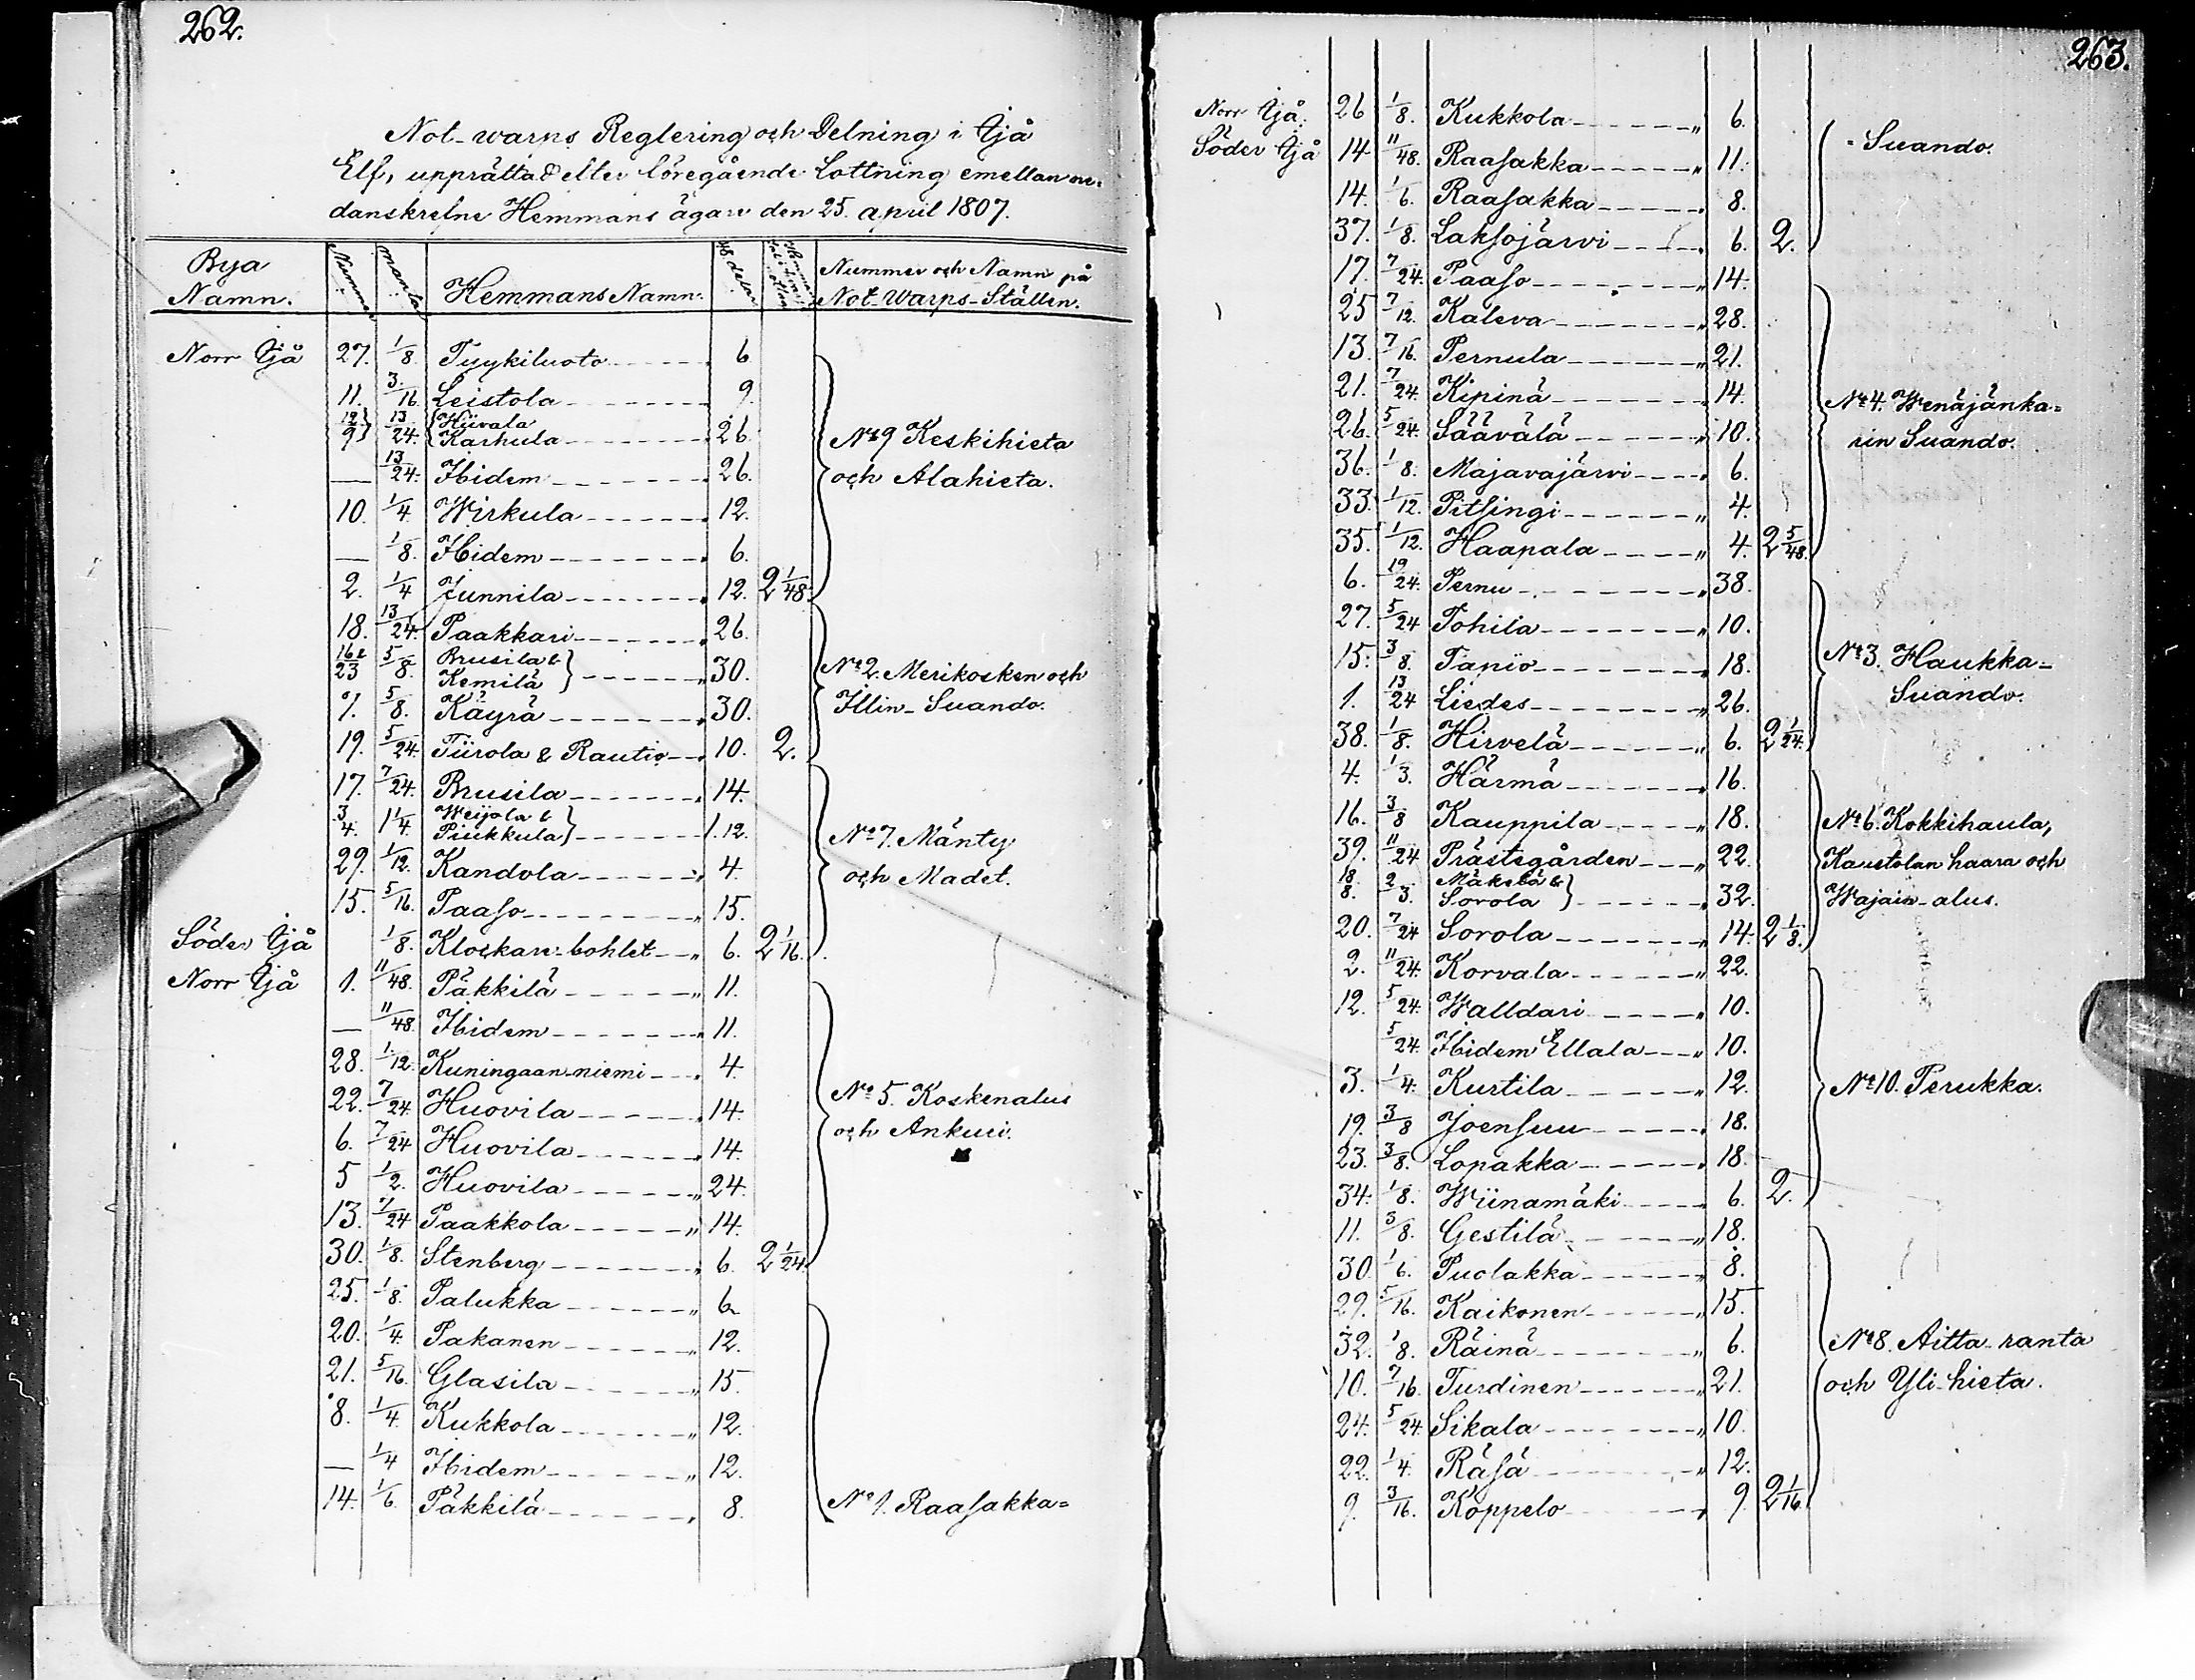 262.
Not-warps Reglering och Delning i Ijå
Elf, upprättad efter föregående Lottning emellan ne-
danskrefne Hemmans ägare den 25. april 1807.
Bya Namn. Nummer mantal Hemmans Namn. 48 delar Nummer och Namn på Not-Warps-Ställen.
Norr Ijå 27. 1/8. Tyykiluoto 6
11. 3/16 Leistola 9
12 } 13/24. { Hiivala
9 } { Karhula 26 No 9 Keskihieta
— 13/24. Ibidem 26. och Alahieta.
10. 1/4. Wirkula 12.
— 1/8. Ibidem 6.
2. 1/4 Junnila 12. 2 1/48.
18. 13/24. Paakkari 26.
16 & 23 5/8. Brusila & Kemilä } 30. No 2. Merikosken och
7. 5/8. Käyrä 30. Illin-Suando.
19. 5/24. Tiirola & Rautio 10. 2.
17. 7/24. Brusila 14.
3/4. 1 1/4. Weijola & Piukkula } 1.12. No 7. Mänty
29. 1/12. Kandola 4. och Madet.
15. 5/16. Paaso 15.
Söder Ijå 1/8. Klockare-bohlet 6. 2 1/16.
Norr Ijå 1. 11/48. Päkkilä 11.
— 11/48. Ibidem 11.
28. 1/12. Kuningaan-niemi 4.
22. 7/24. Huovila 14. No 5. Koskenalus
6. 7/24 Huovila 14. och Ankuri.
5 1/2. Huovila 24.
13. 7/24 Paakkola 14.
30. 1/8. Stenberg 6. 2 1/24.
25. 1/8. Palukka 6
20. 1/4. Pakanen 12.
21. 5/16. Glasila 15.
8. 1/4. Kukkola 12.
— 1/4 Ibidem 12.
14. 1/6. Päkkilä 8. No 1. Raasakka=
263.
Norr Ijå. 26 1/8. Kukkola 6.
Söder Ijå 14 11/48. Raasakka 11. -Suando.
14. 1/6. Raasakka 8.
37. 1/8. Laksojärvi 6. 2.
17. 7/24. Paaso 14.
25 7/12. Kaleva 28.
13. 7/16. Pernula 21.
21. 7/24. Kipinä 14. No 4. Wenäjänka=
26. 5/24. Säävälä 10. rin Suando.
36. 1/8. Majavajärvi 6.
33. 1/12. Pitsingi 4.
35. 1/12. Haapala 4. 2 5/48.
6. 19/24. Pernu 38.
27. 5/24 Tohila 10.
15. 3/8. Tapio 18. No 3. Haukka=
1. 13/24 Liedes 26. Suando.
38. 1/8. Hirvelä 6. 2 1/24.
4. 1/3. Härmä 16.
16. 3/8 Kauppila 18. No 6. Kokkihaula,
39. 11/24 Prästegården 22. Kaustolan haara och
18. 8. 2/3. Mäkelä & Sorola } 32. Wajain-alus.
20. 7/24 Sorola 14. 2 1/8.
2. 11/24. Korvala 22.
12. 5/24. Walldari 10.
5/24. Ibidem Ellala 10.
3. 1/4. Kurtila 12. No 10. Perukka.
19. 3/8 Joensuu 18.
23. 3/8. Lopakka 18.
34. 1/8. Wiinamäki 6. 2.
11. 3/8. Gestilä 18.
30. 1/6. Puolakka 8.
29. 5/16. Kaikonen 15.
32. 1/8. Räinä 6. No 8. Aitta-ranta
10. 7/16. Turdinen 21. och Yli-hieta.
24. 5/24. Sikala 10.
22. 1/4. Räsä 12.
9. 3/16. Koppelo 9. 2 1/16